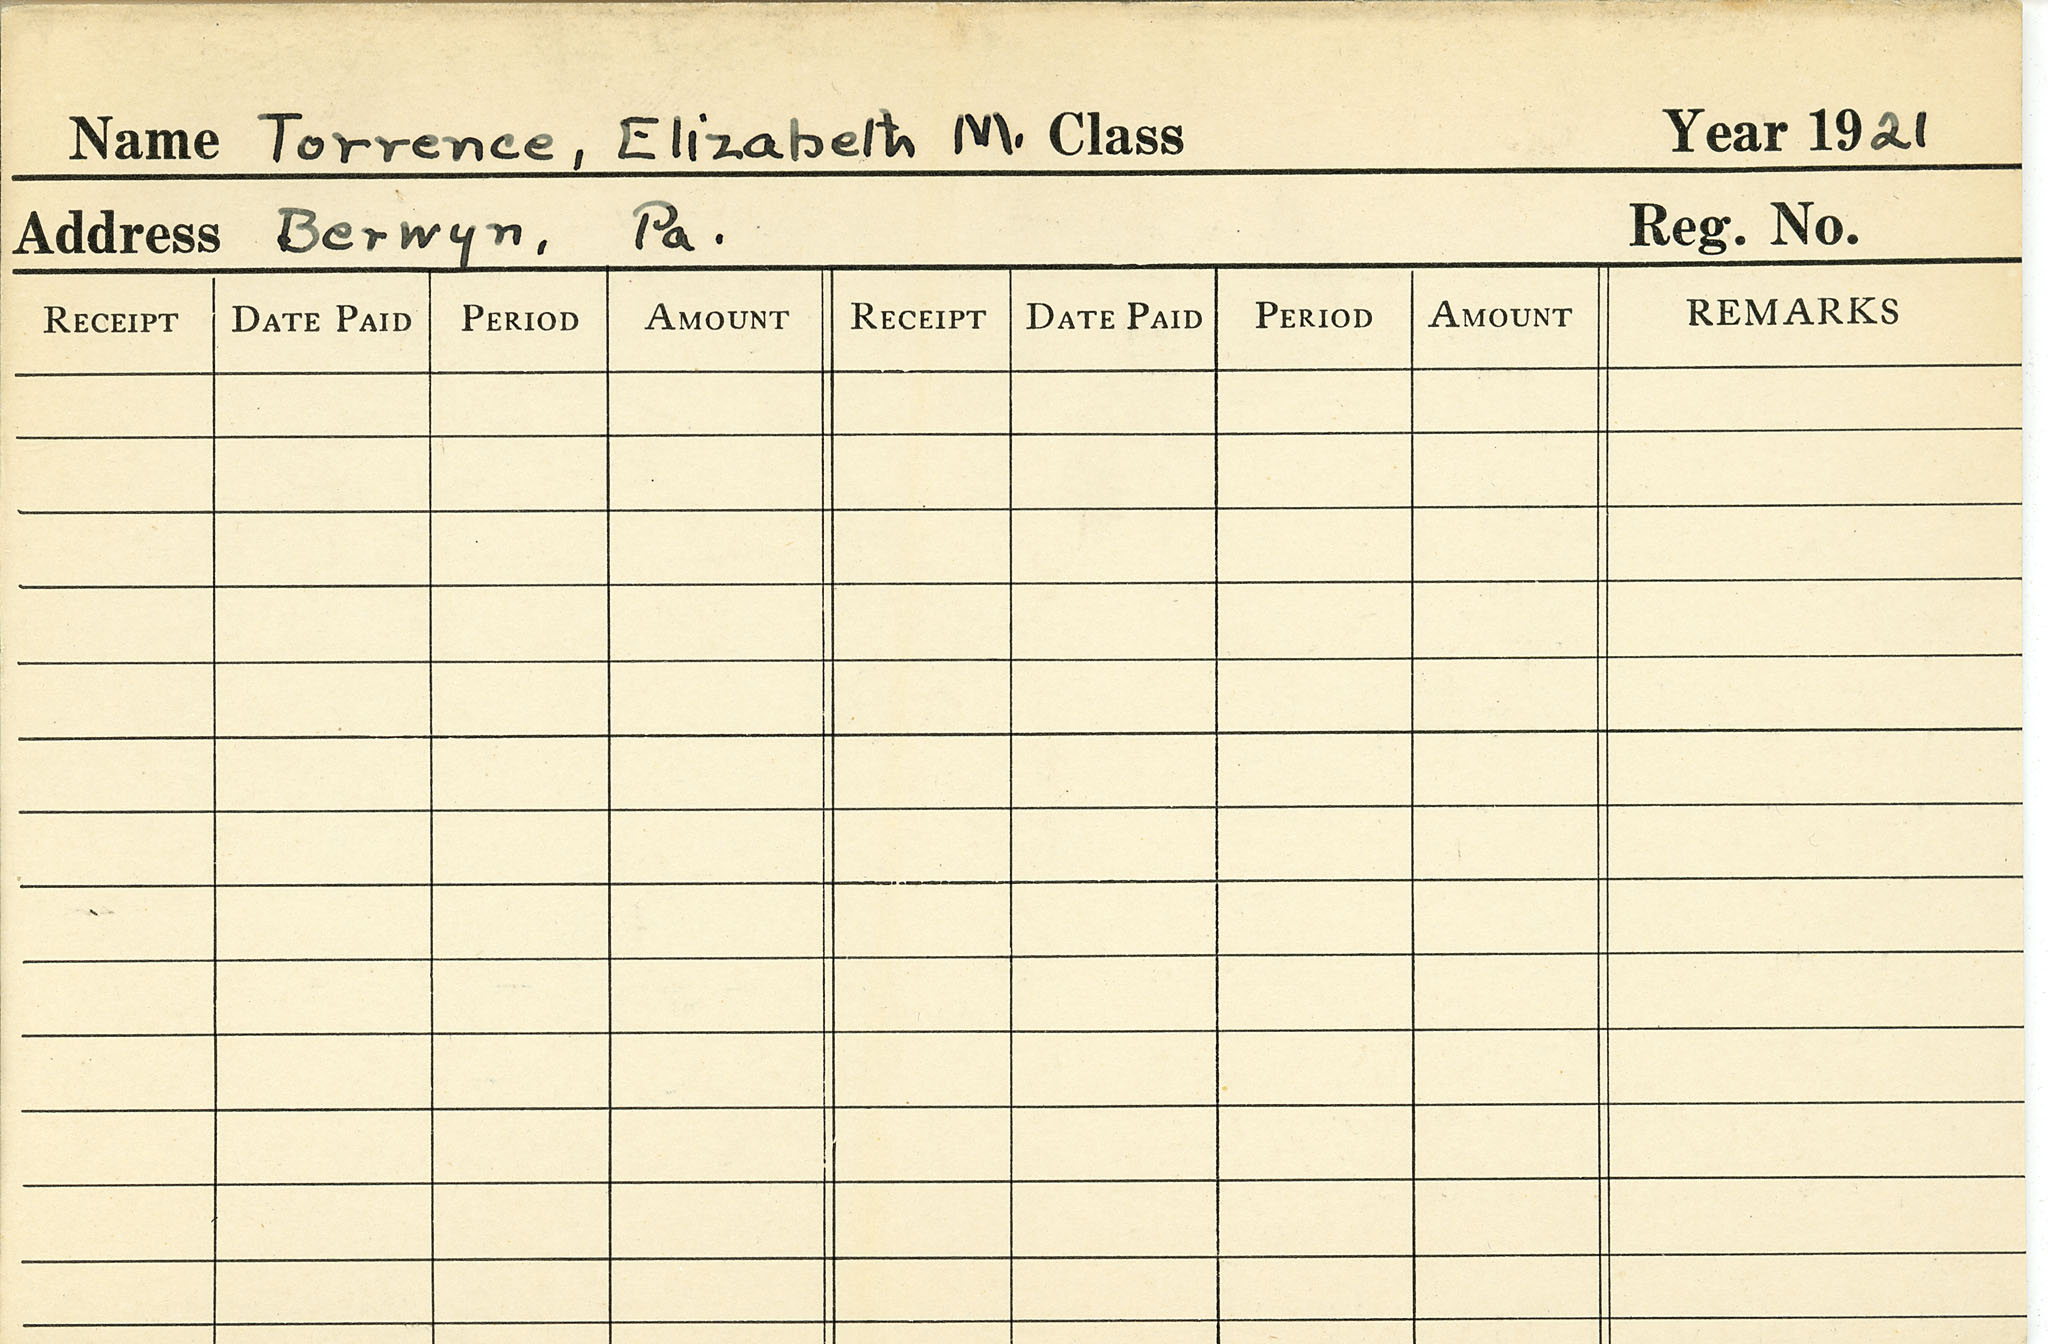 Name Torrence, Elizabeth M. Class Year 1921
Address Berwyn, Pa. Reg. No.
RECEIPT DATE PAID PERIOD AMOUNT RECEIPT DATE PAID PERIOD AMOUNT REMARKS